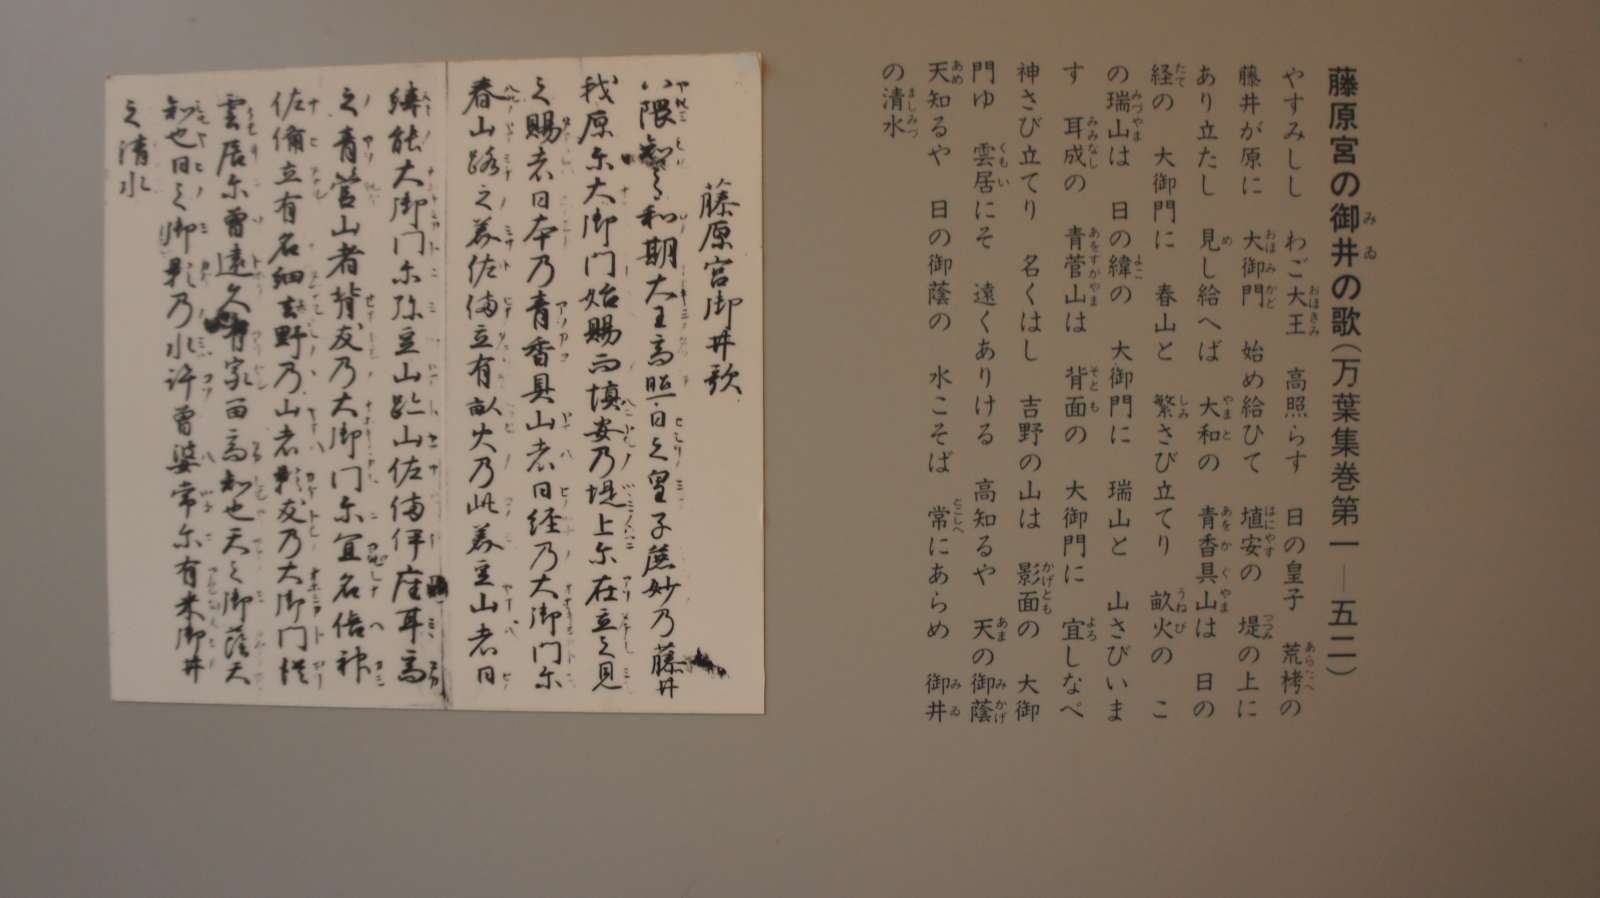 藤原宮の御井の歌（万葉集巻第一―五二）
やすみしし　わご大王　高照らす　日の皇子　荒栲の
藤井が原に　大御門　始め給ひて　埴安の　堤の上に
あり立たし　見し給へば　大和の　青香具山は　日の
経の　大御門に　春山と　繁さび立てり　畝火の　こ
の瑞山は　日の緯の　大御門に　瑞山と　山さびいま
す　耳成の　青菅山は　背面の　大御門に　宜しなべ
神さび立てり　名くはし　吉野の山は　影面の　大御
門ゆ　雲居にそ　遠くありける　高知るや　天の御蔭
天知るや　日の御蔭の　水こそば　常にあらめ　御井
の清水
藤原宮御井歌
八隅知之和期大王高照日之皇子麁妙乃藤井
我原尓大御門始賜而埴安乃堤上尓在立之見
之賜者日本乃青香具山者日経乃大御門尓
春山路之美佐備立有畝火乃此美豆山者日
緯能大御門尓弥豆山跡山佐備伊座耳高
之青菅山者背友乃大御門尓宜名倍神
佐備立有名細吉野乃山者影友乃大御門従
雲居尓曽遠久有家留高知也天之御蔭天
知也日之御影乃水許曽婆常尓有米御井
之清水